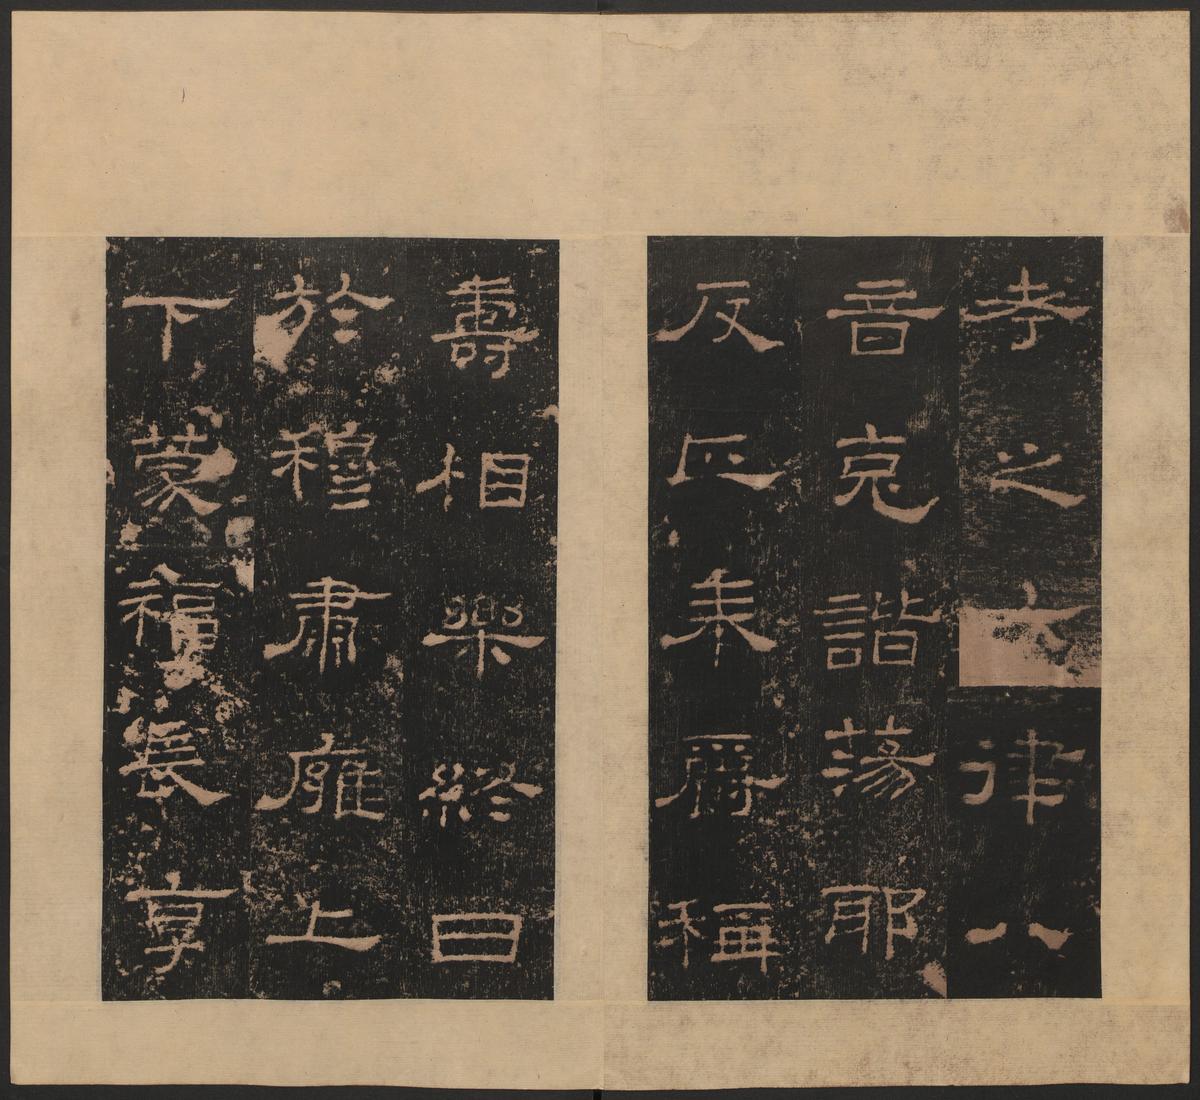 考之六律八
音克諧蕩耶
反正奉爵稱
壽相樂終日
於穆肅廱上
下蒙福長享